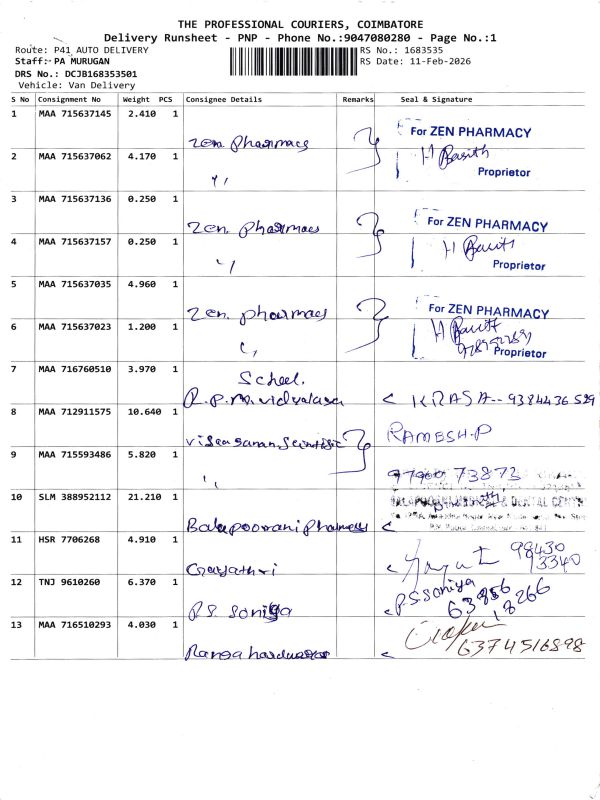 THE PROFESSIONAL COURIERS, COIMBATORE
Delivery Runsheet - PNP - Phone No.:9047080280 - Page No.:1
Route: P41 AUTO DELIVERY
RS No.: 1683535
Staff: PA MURUGAN
RS Date: 11-Feb-2026
DRS No.: DCJB168353501
Vehicle: Van Delivery
S No Consignment No Weight PCS Consignee Details Remarks Seal & Signature
1 MAA 715637145 2.410 1 Zen Pharmacy For ZEN PHARMACY
2 MAA 715637062 4.170 1 〃 H Basith
Proprietor
3 MAA 715637136 0.250 1 Zen Pharmacy For ZEN PHARMACY
4 MAA 715637157 0.250 1 〃 H Basith
Proprietor
5 MAA 715637035 4.960 1 Zen pharmacy For ZEN PHARMACY
6 MAA 715637023 1.200 1 〃 H Basith
Proprietor
7 MAA 716760510 3.970 1 School.
R.P.M. vidyalaya KRASA-- 9384436529
8 MAA 712911575 10.640 1 Scientific RAMESH.P
9 MAA 715593486 5.820 1 〃 97900 73873
10 SLM 388952112 21.210 1 Balapoorani Pharmacy & DENTAL
11 HSR 7706268 4.910 1 Gayathri 98430
13340
12 TNJ 9610260 6.370 1 P.S. Soniya P.S.Soniya
63856
18266
13 MAA 716510293 4.030 1 Ranga hardwares 6374516898